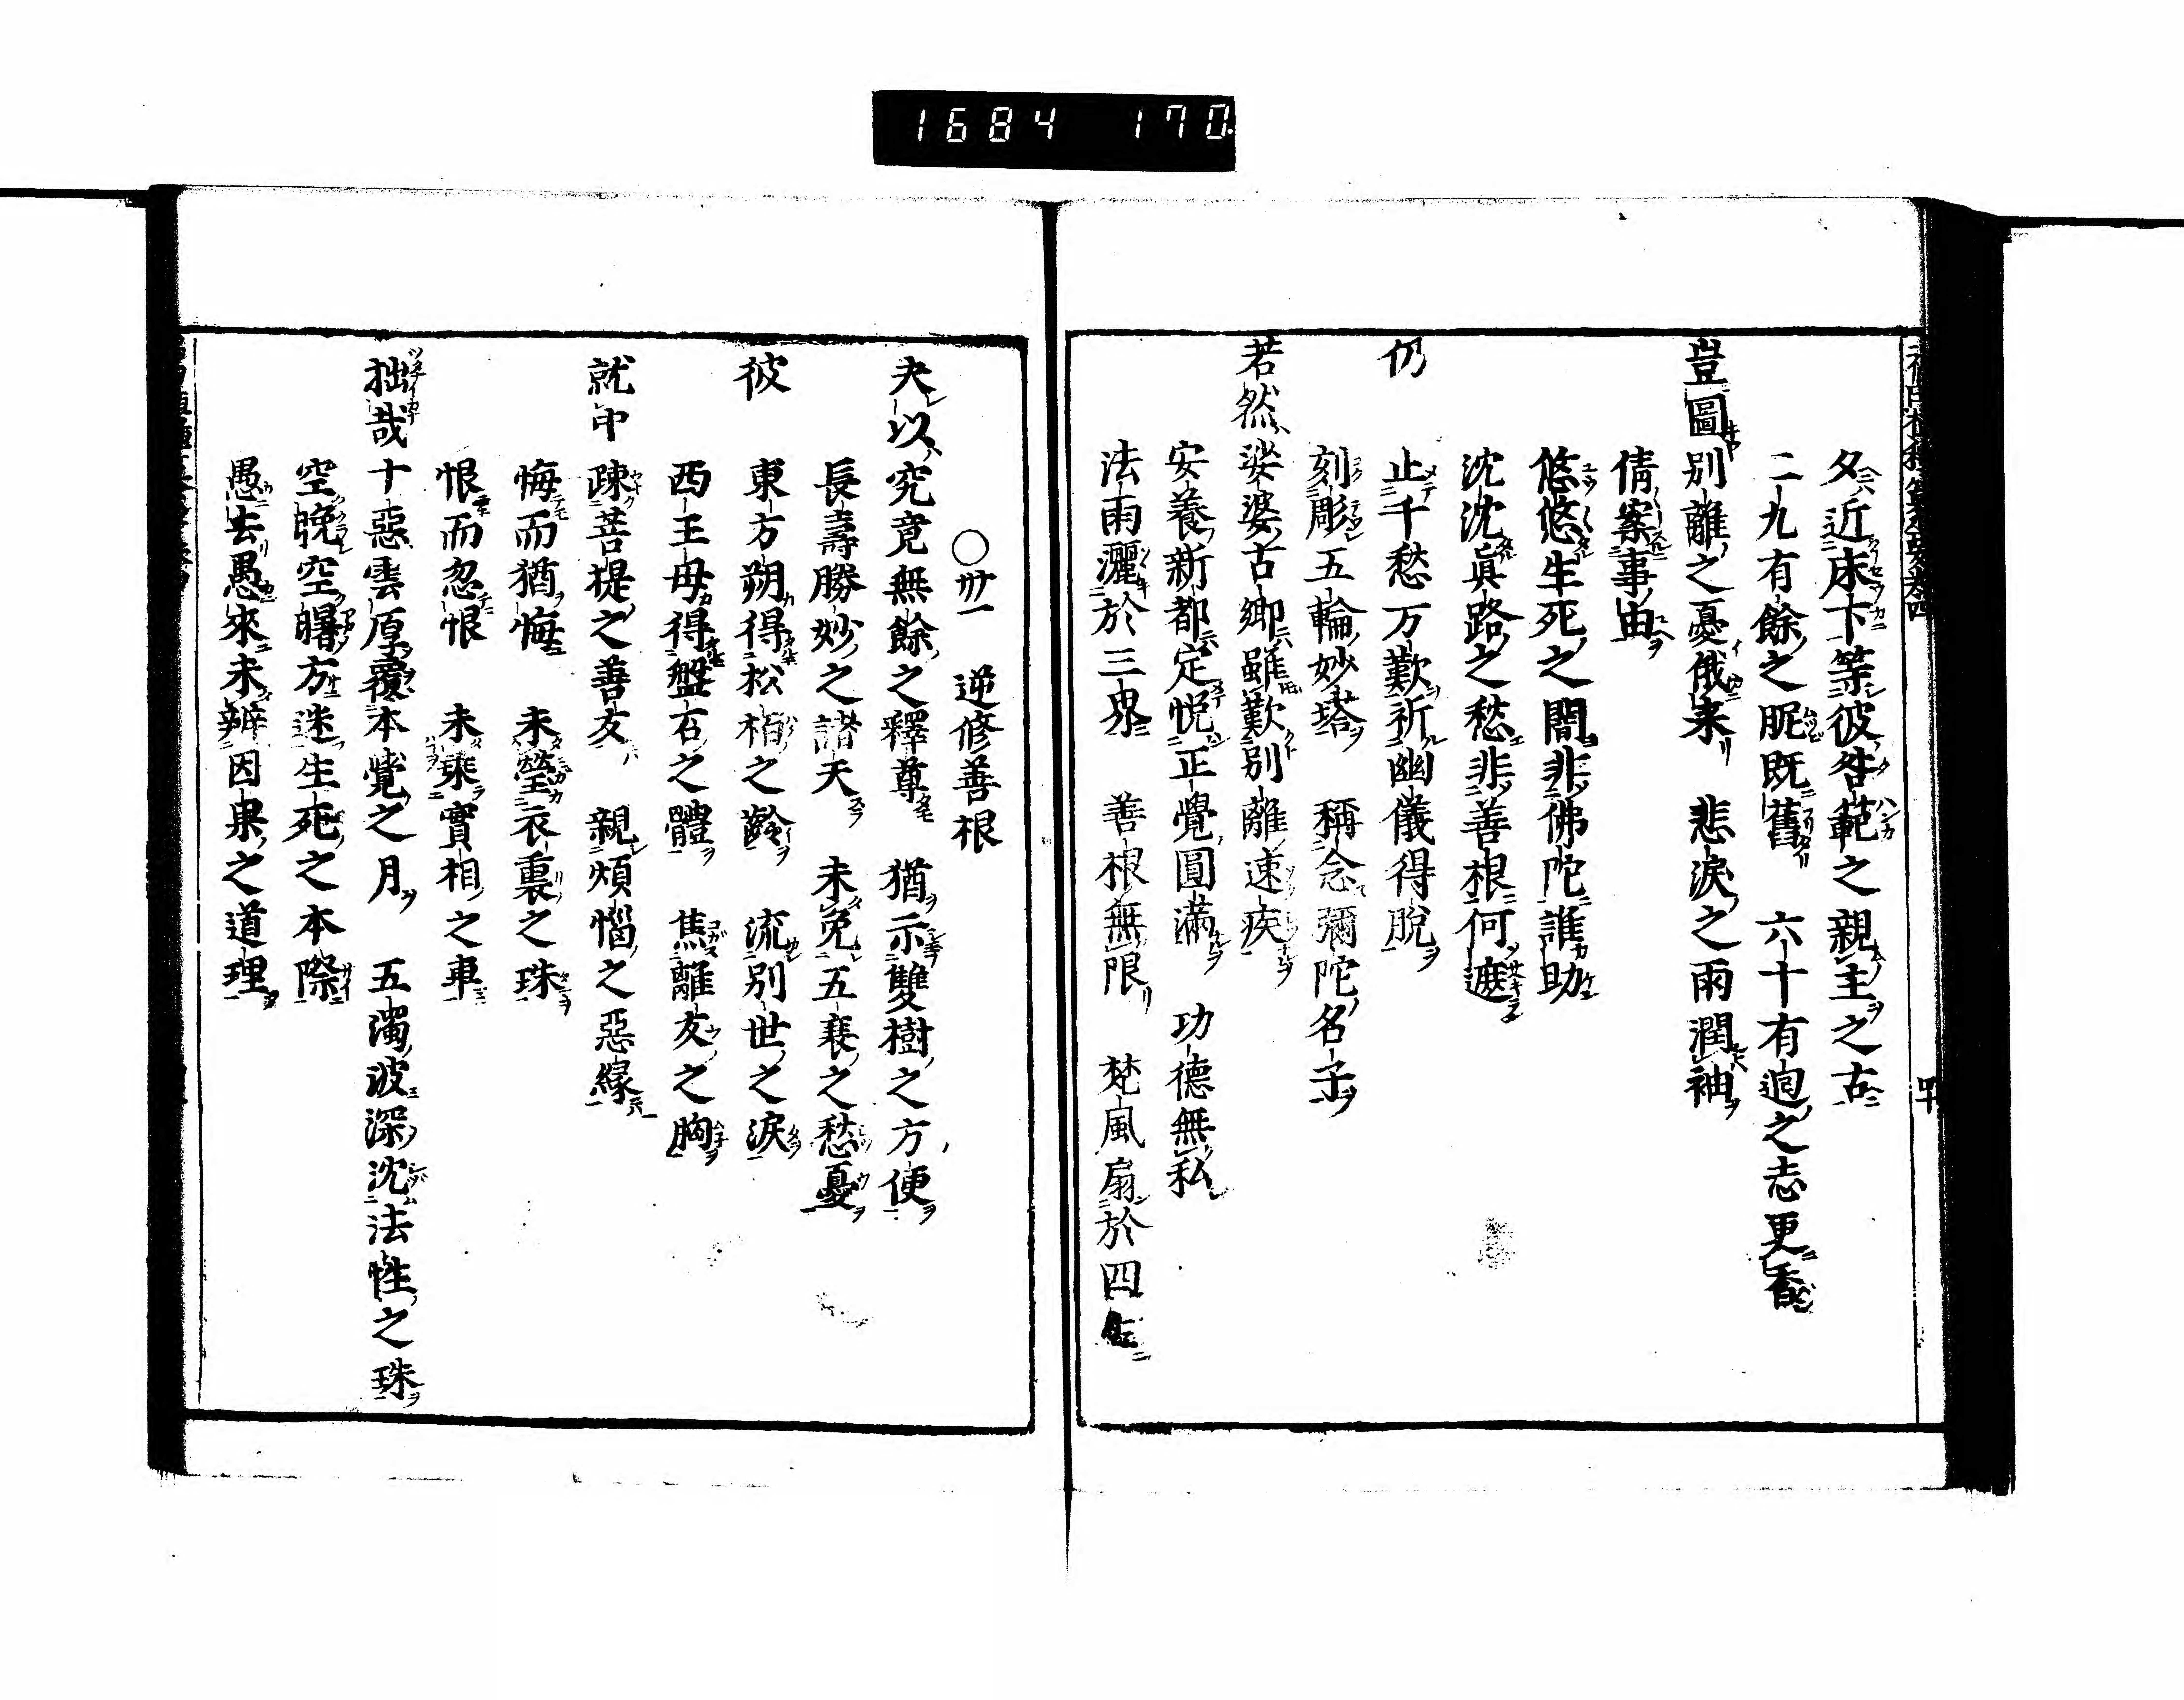 1684 170
夕近床下等彼咎範之親主之古
二九有餘之眤既舊 六十有廻之志更香
豈圖別離之憂俄来 悲淚之雨潤袖
倩案事由
悠悠生死之間非佛陀誰助
沈沈眞路之愁非善根何遮
仍 止千愁万歎祈幽儀得脱
刻彫五輪妙塔 稱念彌陀名字
若然 娑婆古卿雖歎別離速疾
安養新都定悦正覺圓滿 功德無私
法雨灑於三界 善根無限 梵風扇於四生
四十
○卅一 逆修善根
夫以 究竟無餘之釋尊 猶示雙樹之方便
長壽勝妙之諸天 未免五衰之愁憂
彼 東方朔得松栢之齡 流別世之淚
西王母得盤石之體 焦離友之胸
就中 疎菩提之善友 親煩惱之惡緣
悔而猶悔 未瑩衣裏之珠
恨而忽恨 未乘實相之車
拙哉 十惡雲厚覆本覺之月 五濁波深沈法性之珠
空晩空曙方迷生死之本際
愚去愚來未辨因果之道理